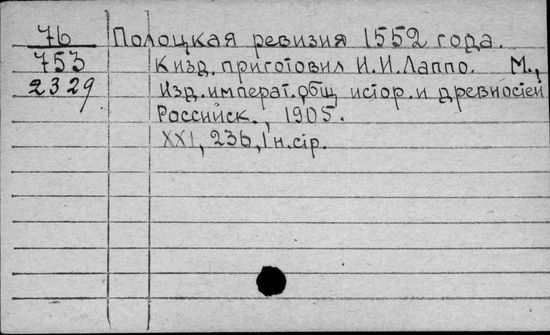 76 Полоцкая ревизия 1552 года.
753 К изд. приготовил И.И.Лаппо. М.,
2329 Изд. императ. общ истор. и древностей
Российск., 1905.
XXI, 236, 1 н. стр.